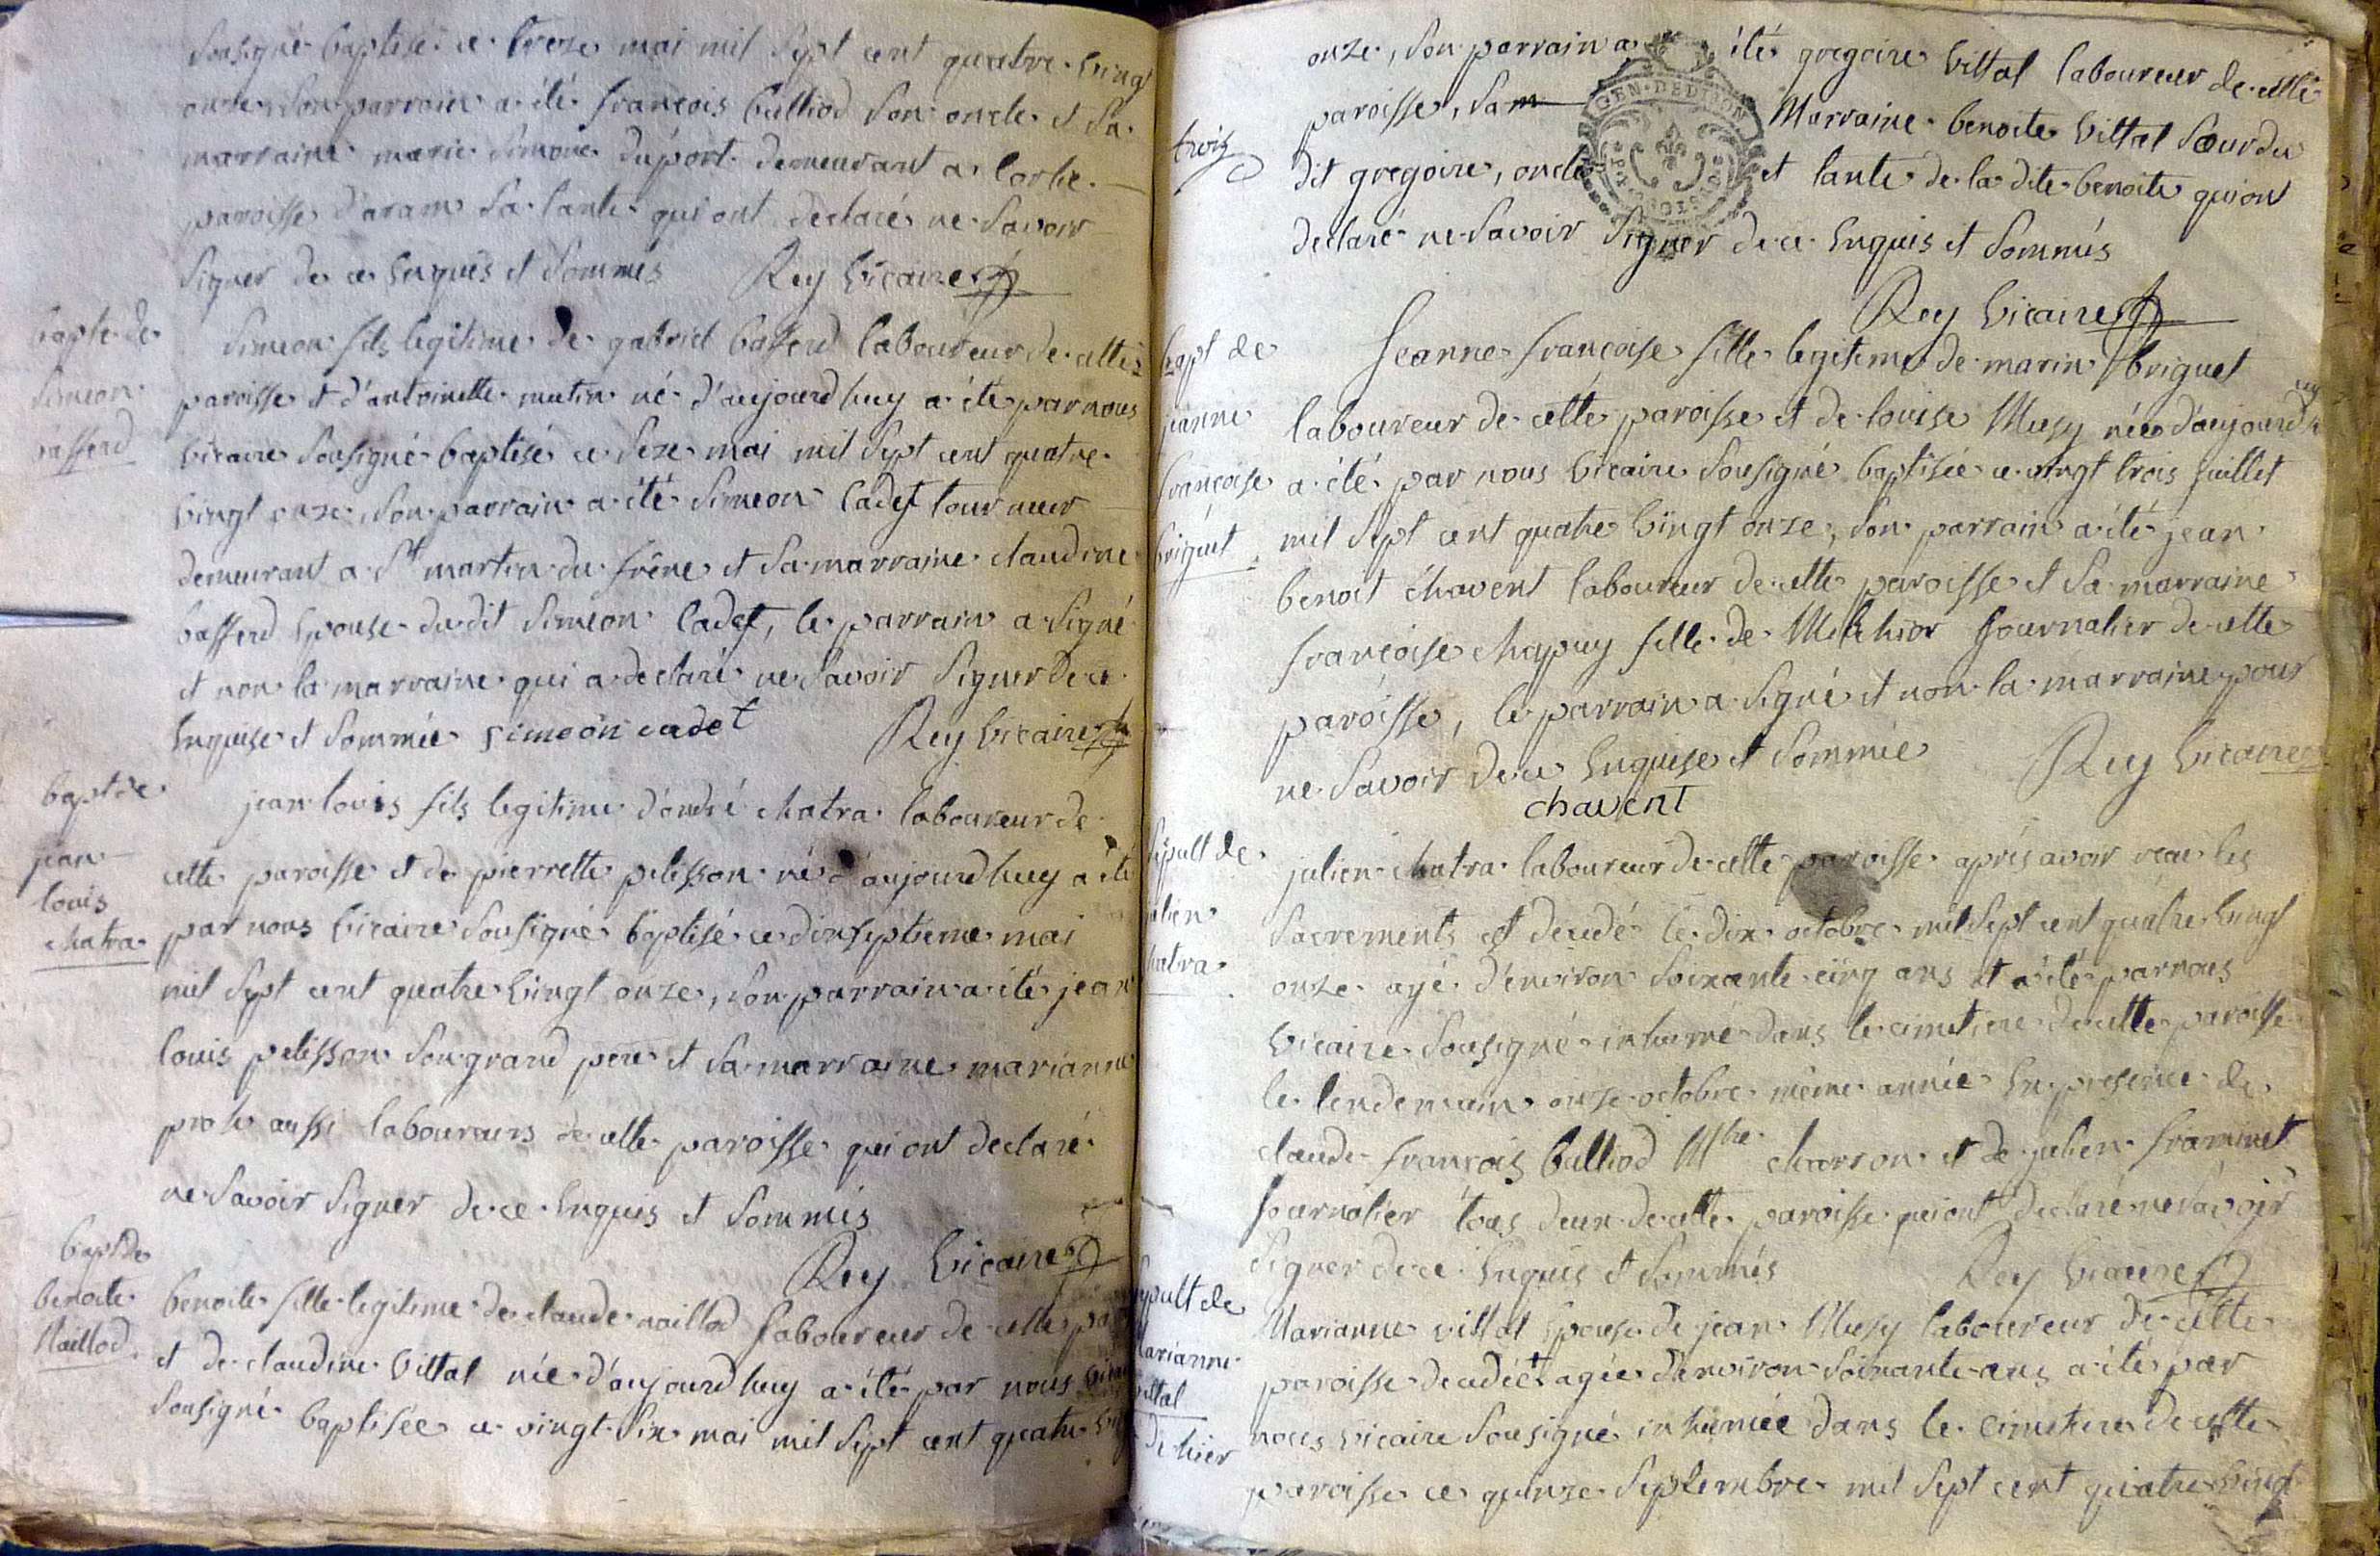 sousigné baptisé ce treze mai mil sept cent quatre vingt
onze, son parrain a été françois bulliod son oncle et sa
marraine marie simone duport demeurant a Corbe
paroisse d'aram sa tante qui ont declaré ne savoir
signer de ce enquis et sommés Rey vicaire
bapt de
simeon
basserd
simeon fils legitime de gabriel basserd laboureur de cette
paroisse et d'antoinette mutin né d'aujourd huy a été par nous
vicaire sousigné baptisé ce seze mai mil sept cent quatre
vingt onze, son parrain a été simeon Cadet tourneur
demeurant a St martin du frêne et sa marraine claudine
basserd epouse du dit simeon Cadet, le parrain a signé
et non la marraine qui a declaré ne savoir signer de ce
enquise et sommée simeon cadet Rey vicaire
bapt de
jean
louis
chatra
jean louis fils legitime d'andré chatra laboureur de
cette paroisse et de pierrette pelisson né d'aujourd huy a été
par nous vicaire sousigné baptisé ce dixseptieme mai
mil sept cent quatre vingt onze, son parrain a été jean
louis pelisson son grand pere et sa marraine marianne
aussi laboureurs de cette paroisse qui ont declaré
ne savoir signer de ce enquis et sommés
Rey vicaire
bapt de
benoite
Naillod
benoite fille legitime de claude naillod laboureur de cette
et de claudine vittal née d'aujourd huy a été par nous
sousigné baptisée ce vingt six mai mil sept cent quatre
trois
onze, son parrain a été gregoire vittal laboureur de cette
paroisse, sa m Marraine benoite vittal soeur du
dit gregoire, oncle et tante de la dite benoite qui ont
declaré ne savoir signer de ce enquis et sommés
GEN. DE DIJON
Rey vicaire
bapt de
jeanne
françoise
briguet
Jeanne françoise fille legitime de marin briguet
laboureur de cette paroisse et de louise Musy née d'aujourd huy
a été par nous vicaire sousigné baptisée ce vingt trois juillet
mil sept cent quatre vingt onze, son parrain a été jean
benoit chavent laboureur de cette paroisse et sa marraine
françoise chapuy fille de Melchior journalier de cette
paroisse, le parrain a signé et non la marraine pour
ne savoir de ce enquise et sommée Rey vicaire
chavent
sepult de
julien
chatra
julien chatra laboureur de cette paroisse après avoir reçu les
sacrements est decedé le dix octobre mil sept cent quatre vingt
onze agé d'environ soixante cinq ans et a été par nous
vicaire sousigné inhumé dans le cimetiere de cette paroisse
le lendemain onze octobre même année en presence de
claude françois bulliod Mtre charron et de julien frammet
journalier tous deux de cette paroisse qui ont declaré ne savoir
signer de ce enquis et sommés Rey vicaire
sepult de
Marianne
vittal
de hier
Marianne vittal epouse de jean Musy laboureur de cette
paroisse decedée + agée d'environ soixante ans a été par
nous vicaire sousigné inhumée dans le cimetiere de cette
paroisse ce quinze septembre mil sept cent quatre vingt